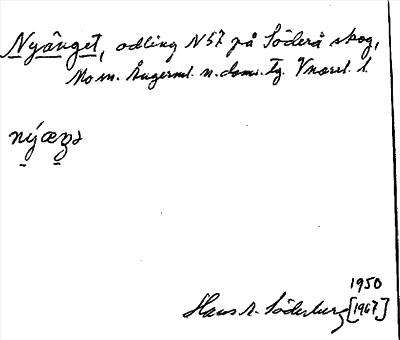 Nyänget, odling N57 på Söderå skog,
Mo sn. Ångerml. n. doms. tg. Vnorrl. l.
nýæŋə
1950
Hans A. Söderberg [1967]